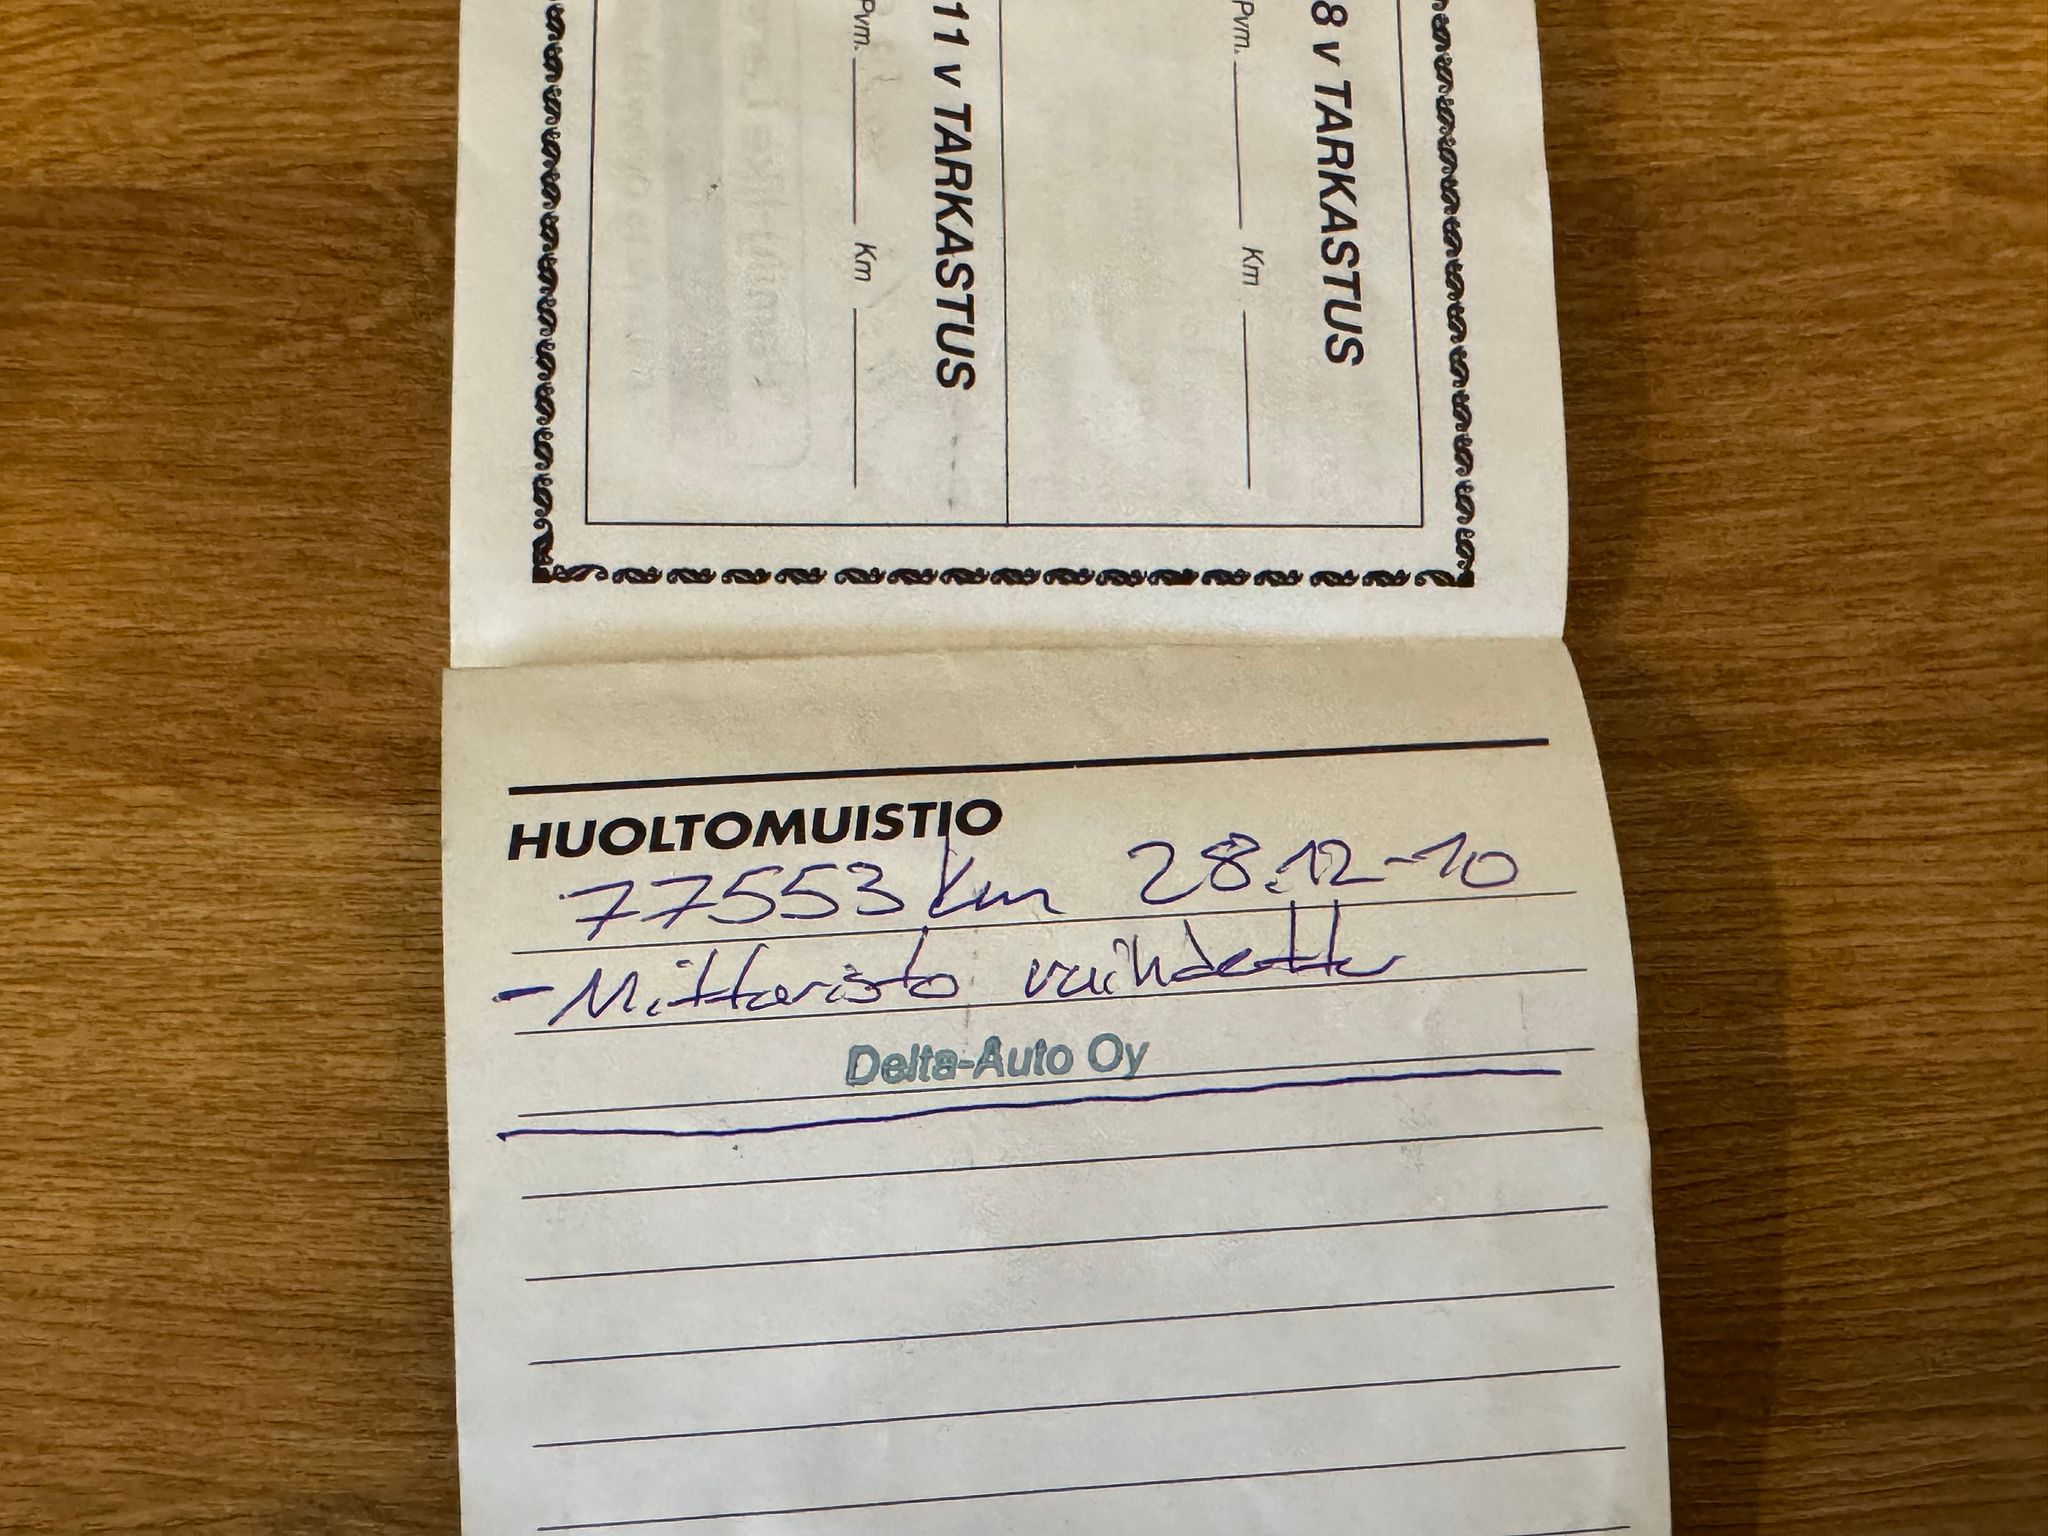 8 v TARKASTUS
Pvm. Km
11 v TARKASTUS
Pvm. Km
HUOLTOMUISTIO
77553 km 28.12-10
- Mittaristo vaihdettu
Delta-Auto Oy